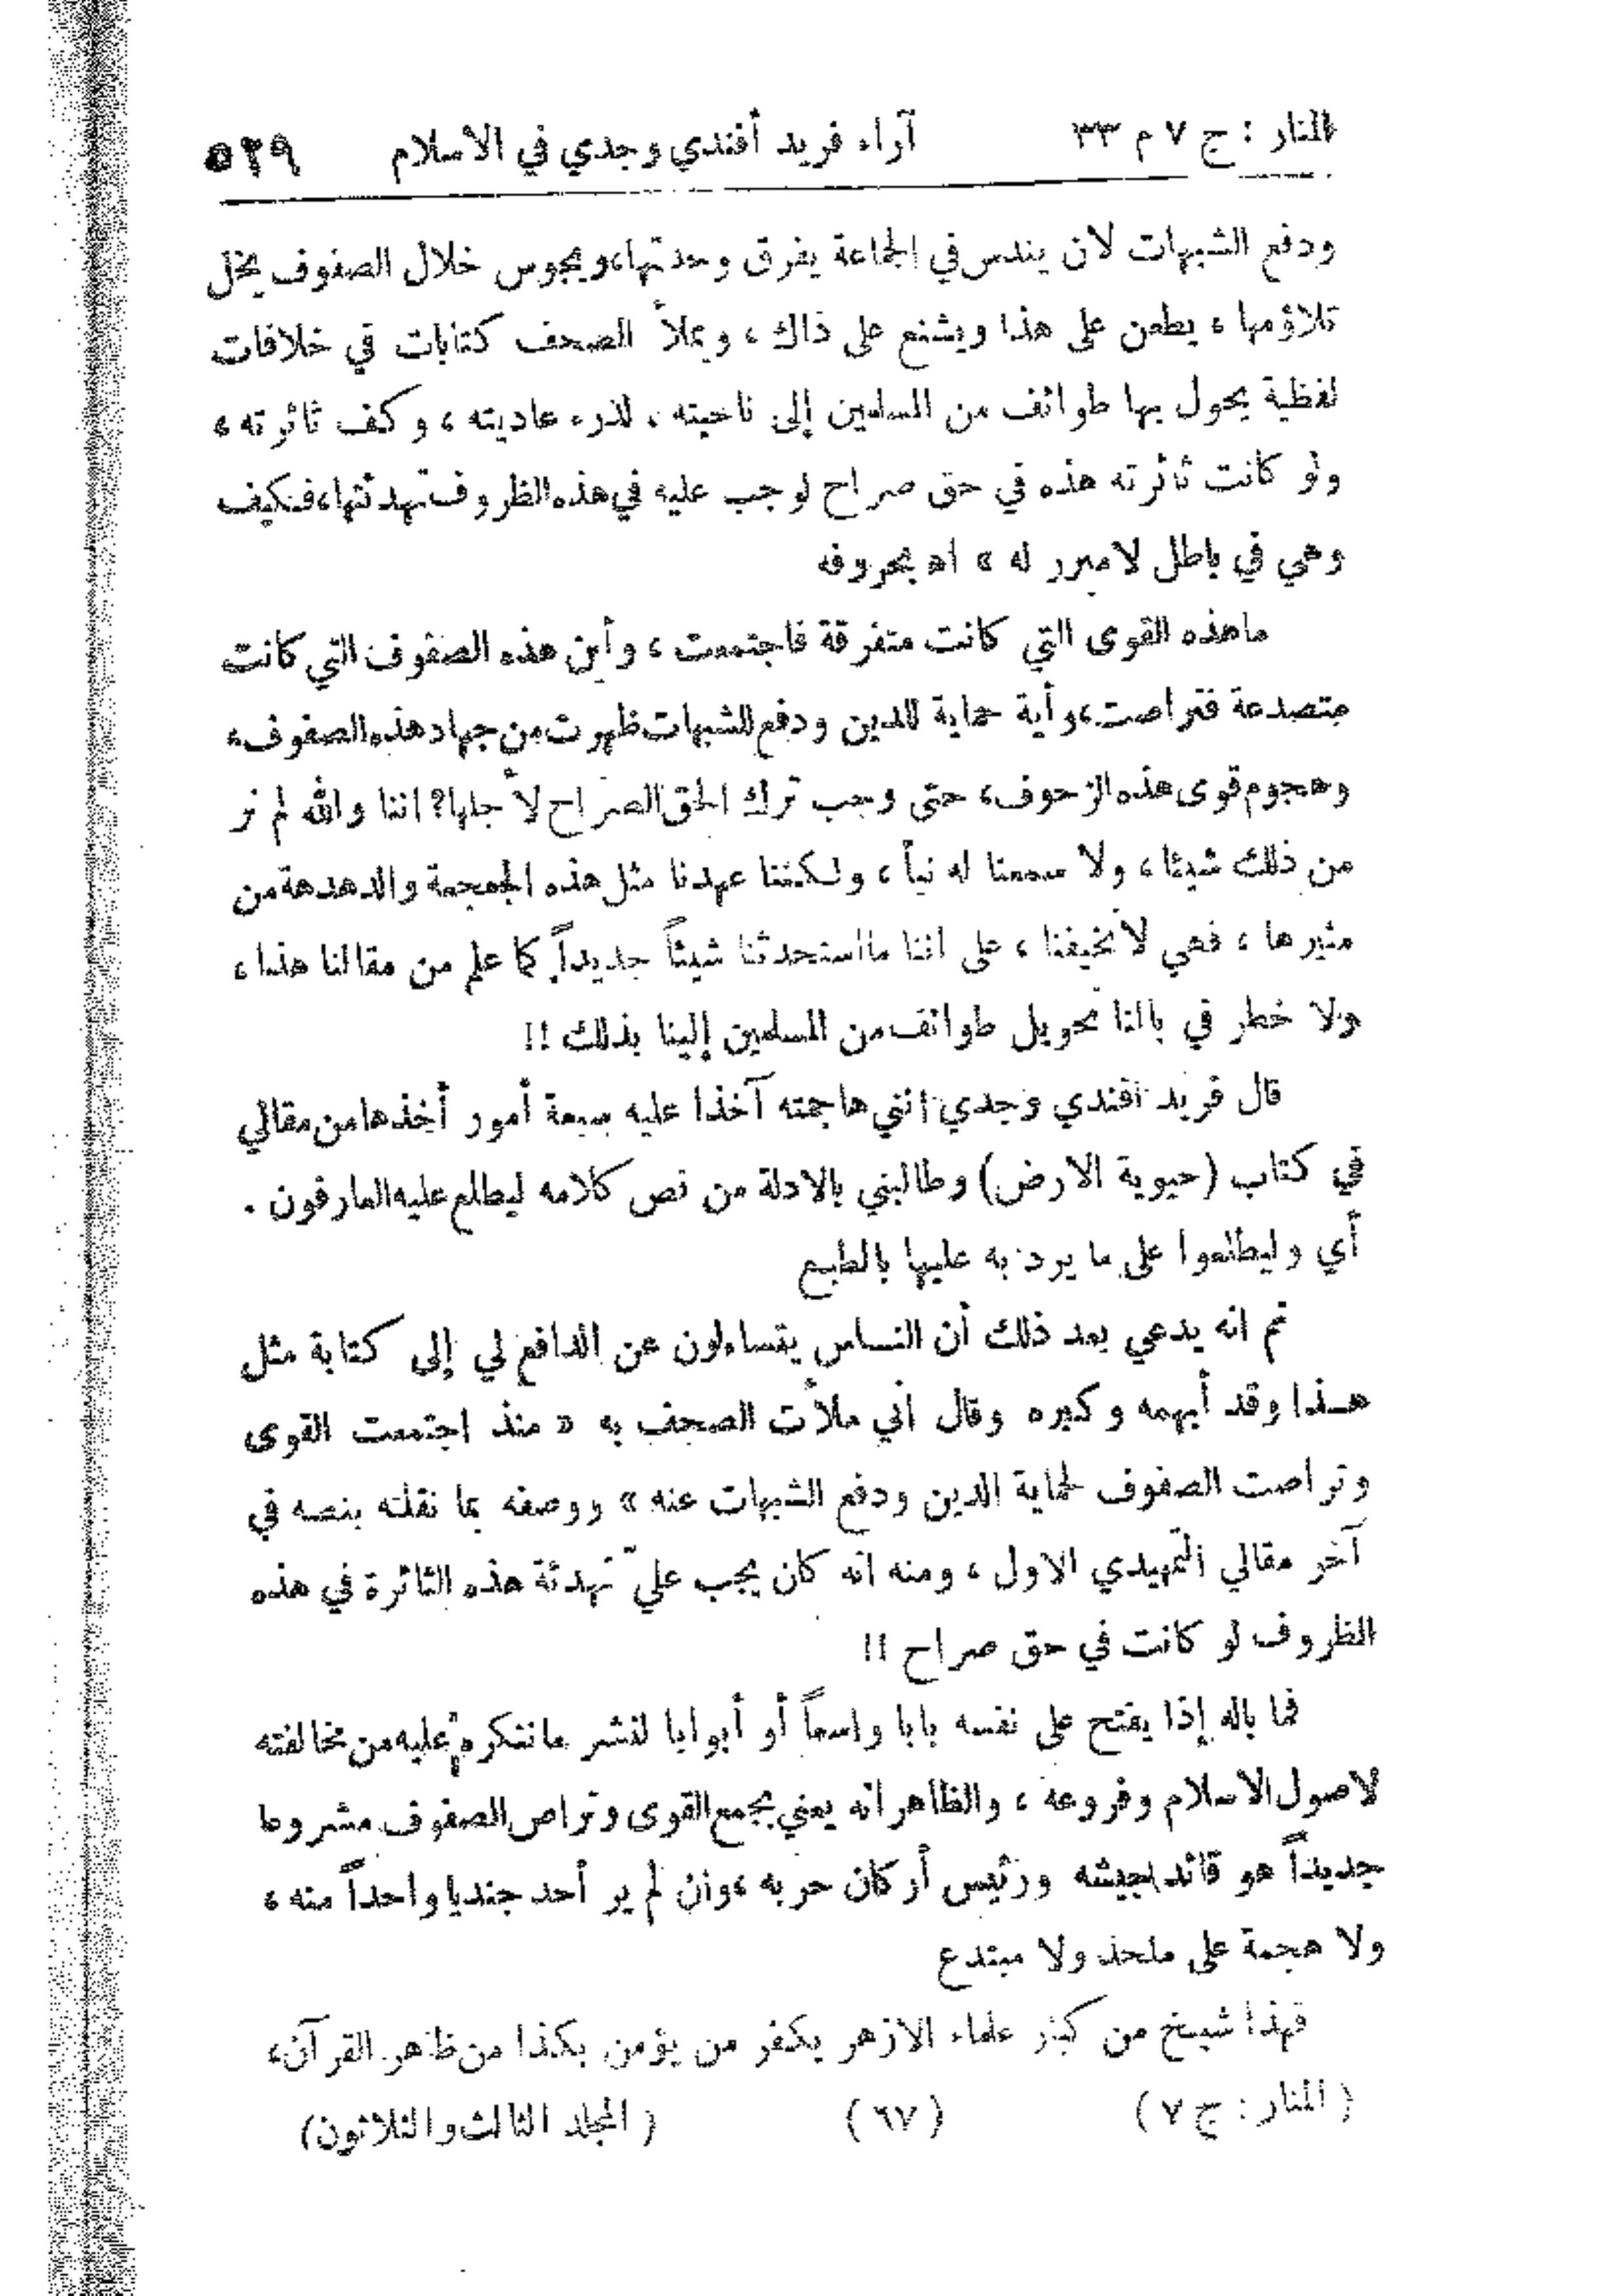 المنار : ج ٧ م ٣٣ آراء فريد أفندي وجدي في الاسلام ٥٢٩
ودفع الشبهات لان يندس في الجماعة يفرق وحدتها، ويجوس خلال الصفوف يخل
تلاؤمها ، يطعن على هذا ويشنع على ذاك ، ويملأ الصحف كتابات في خلافات
لفظية يحول بها طوائف من المسلمين إلى ناحيته ، لدرء عاديته ، وكف ثائرته ،
ولو كانت ثائرته هذه في حق صراح لوجب عليه في هذه الظروف تهدئتها، فكيف
وهي في باطل لا مبرر له » اه بحروفه
ما هذه القوى التي كانت متفرقة فاجتمعت ، وأين هذه الصفوف التي كانت
متصدعة فتراصت، وأية حماية للدين ودفع للشبهات ظهرت من جهاد هذه الصفوف،
وهجوم قوى هذه الزحوف، حتى وجب ترك الحق الصراح لأجلها؟ اننا والله لم نر
من ذلك شيئا ، ولا سمعنا له نبأ ، ولكننا عهدنا مثل هذه الجمجمة والدهدهة من
مثيرها ، فهي لا تخيفنا ، على اننا ما استحدثنا شيئاً جديداً كما علم من مقالنا هذا ،
ولا خطر في بالنا تحويل طوائف من المسلمين إلينا بذلك !!
قال فريد افندي وجدي انني هاجمته آخذا عليه سبعة أمور أخذها من مقالي
في كتاب (حيوية الارض) وطالبني بالادلة من نص كلامه ليطلع عليه العارفون .
أي وليطلعوا على ما يرد به عليها بالطبع
ثم انه يدعي بعد ذلك أن النـاس يتساءلون عن الدافع لي إلى كتابة مثل
هـذا وقد أبهمه وكبره وقال اني ملأت الصحف به « منذ اجتمعت القوى
وتراصت الصفوف لحماية الدين ودفع الشبهات عنه » ووصفه بما نقلته بنصه في
آخر مقالي التمهيدي الاول ، ومنه انه كان يجب عليّ تهدئة هذه الثائرة في هذه
الظروف لو كانت في حق صراح !!
فما باله إذا يفتح على نفسه بابا واسعاً أو أبوابا لنشر ما ننكره عليه من مخالفته
لاصول الاسلام وفروعه ، والظاهر انه يعني بجمع القوى وتراص الصفوف مشروعا
جديداً هو قائد لجيشه ورئيس أركان حربه ، وإن لم ير أحد جنديا واحداً منه ،
ولا هجمة على ملحد ولا مبتدع
فهذا شيخ من كبار علماء الازهر يكفر من يؤمن بكذا من ظاهر القرآن،
( المنار : ج ٧ ) ( ٦٧ ) ( المجلد الثالث والثلاثون)